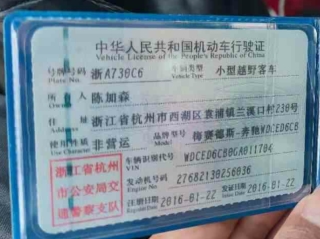 中华人民共和国机动车行驶证
Vehicle License of the People's Republic of China
号牌号码 浙A730C6 车辆类型 小型越野客车
Plate No. Vehicle Type
所有人 陈加森
Owner
住址 浙江省杭州市西湖区袁浦镇兰溪口村230号
Address
使用性质 非营运 品牌型号 梅赛德斯-奔驰WDCED6CB
Use Character Model
浙江省杭州 车辆识别代号 WDCED6CB0GA011704
VIN
市公安局交 发动机号码 27682130256036
Engine No.
通警察支队 注册日期 2016-01-22 发证日期 2016-01-22
Register Date Issue Date